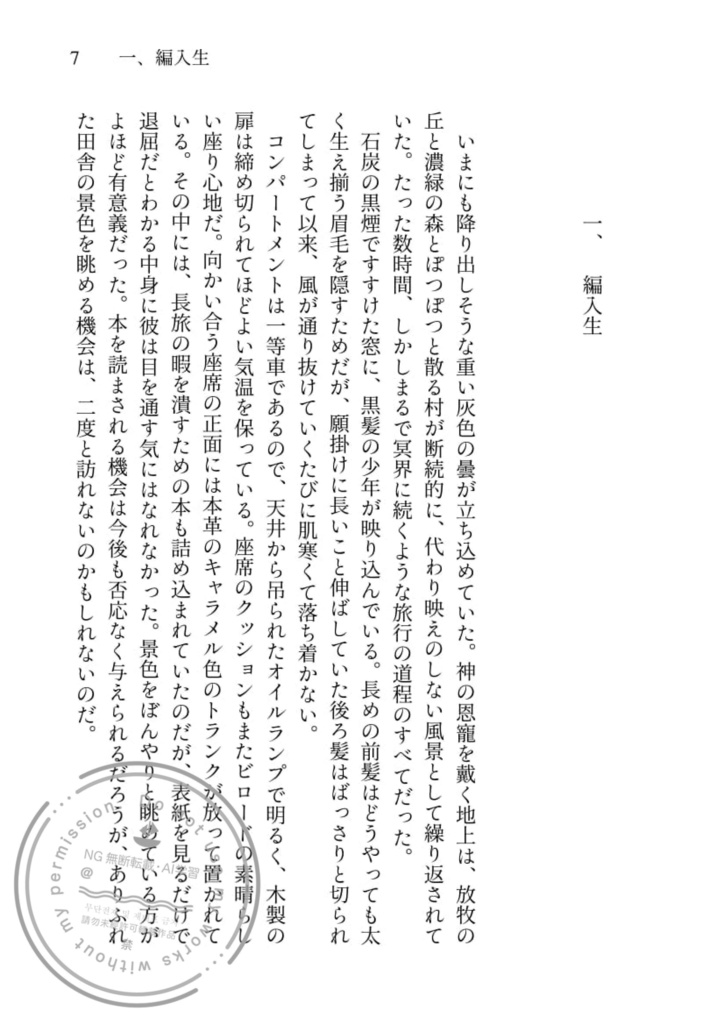 7 一、編入生
一、 編入生
いまにも降り出しそうな重い灰色の曇が立ち込めていた。神の恩寵を戴く地上は、放牧の
丘と濃緑の森とぽつぽつと散る村が断続的に、代わり映えのしない風景として繰り返されて
いた。たった数時間、しかしまるで冥界に続くような旅行の道程のすべてだった。
石炭の黒煙ですすけた窓に、黒髪の少年が映り込んでいる。長めの前髪はどうやっても太
く生え揃う眉毛を隠すためだが、願掛けに長いこと伸ばしていた後ろ髪はばっさりと切られ
てしまって以来、風が通り抜けていくたびに肌寒くて落ち着かない。
コンパートメントは一等車であるので、天井から吊られたオイルランプで明るく、木製の
扉は締め切られてほどよい気温を保っている。座席のクッションもまたビロードの素晴らし
い座り心地だ。向かい合う座席の正面には本革のキャラメル色のトランクが放って置かれて
いる。その中には、長旅の暇を潰すための本も詰め込まれていたのだが、表紙を見るだけで
退屈だとわかる中身に彼は目を通す気にはなれなかった。景色をぼんやりと眺めている方が
よほど有意義だった。本を読まされる機会は今後も否応なく与えられるだろうが、ありふれ
た田舎の景色を眺める機会は、二度と訪れないのかもしれないのだ。
Do not use my works without my permission.
NG 無断転載・AI学習
@
禁